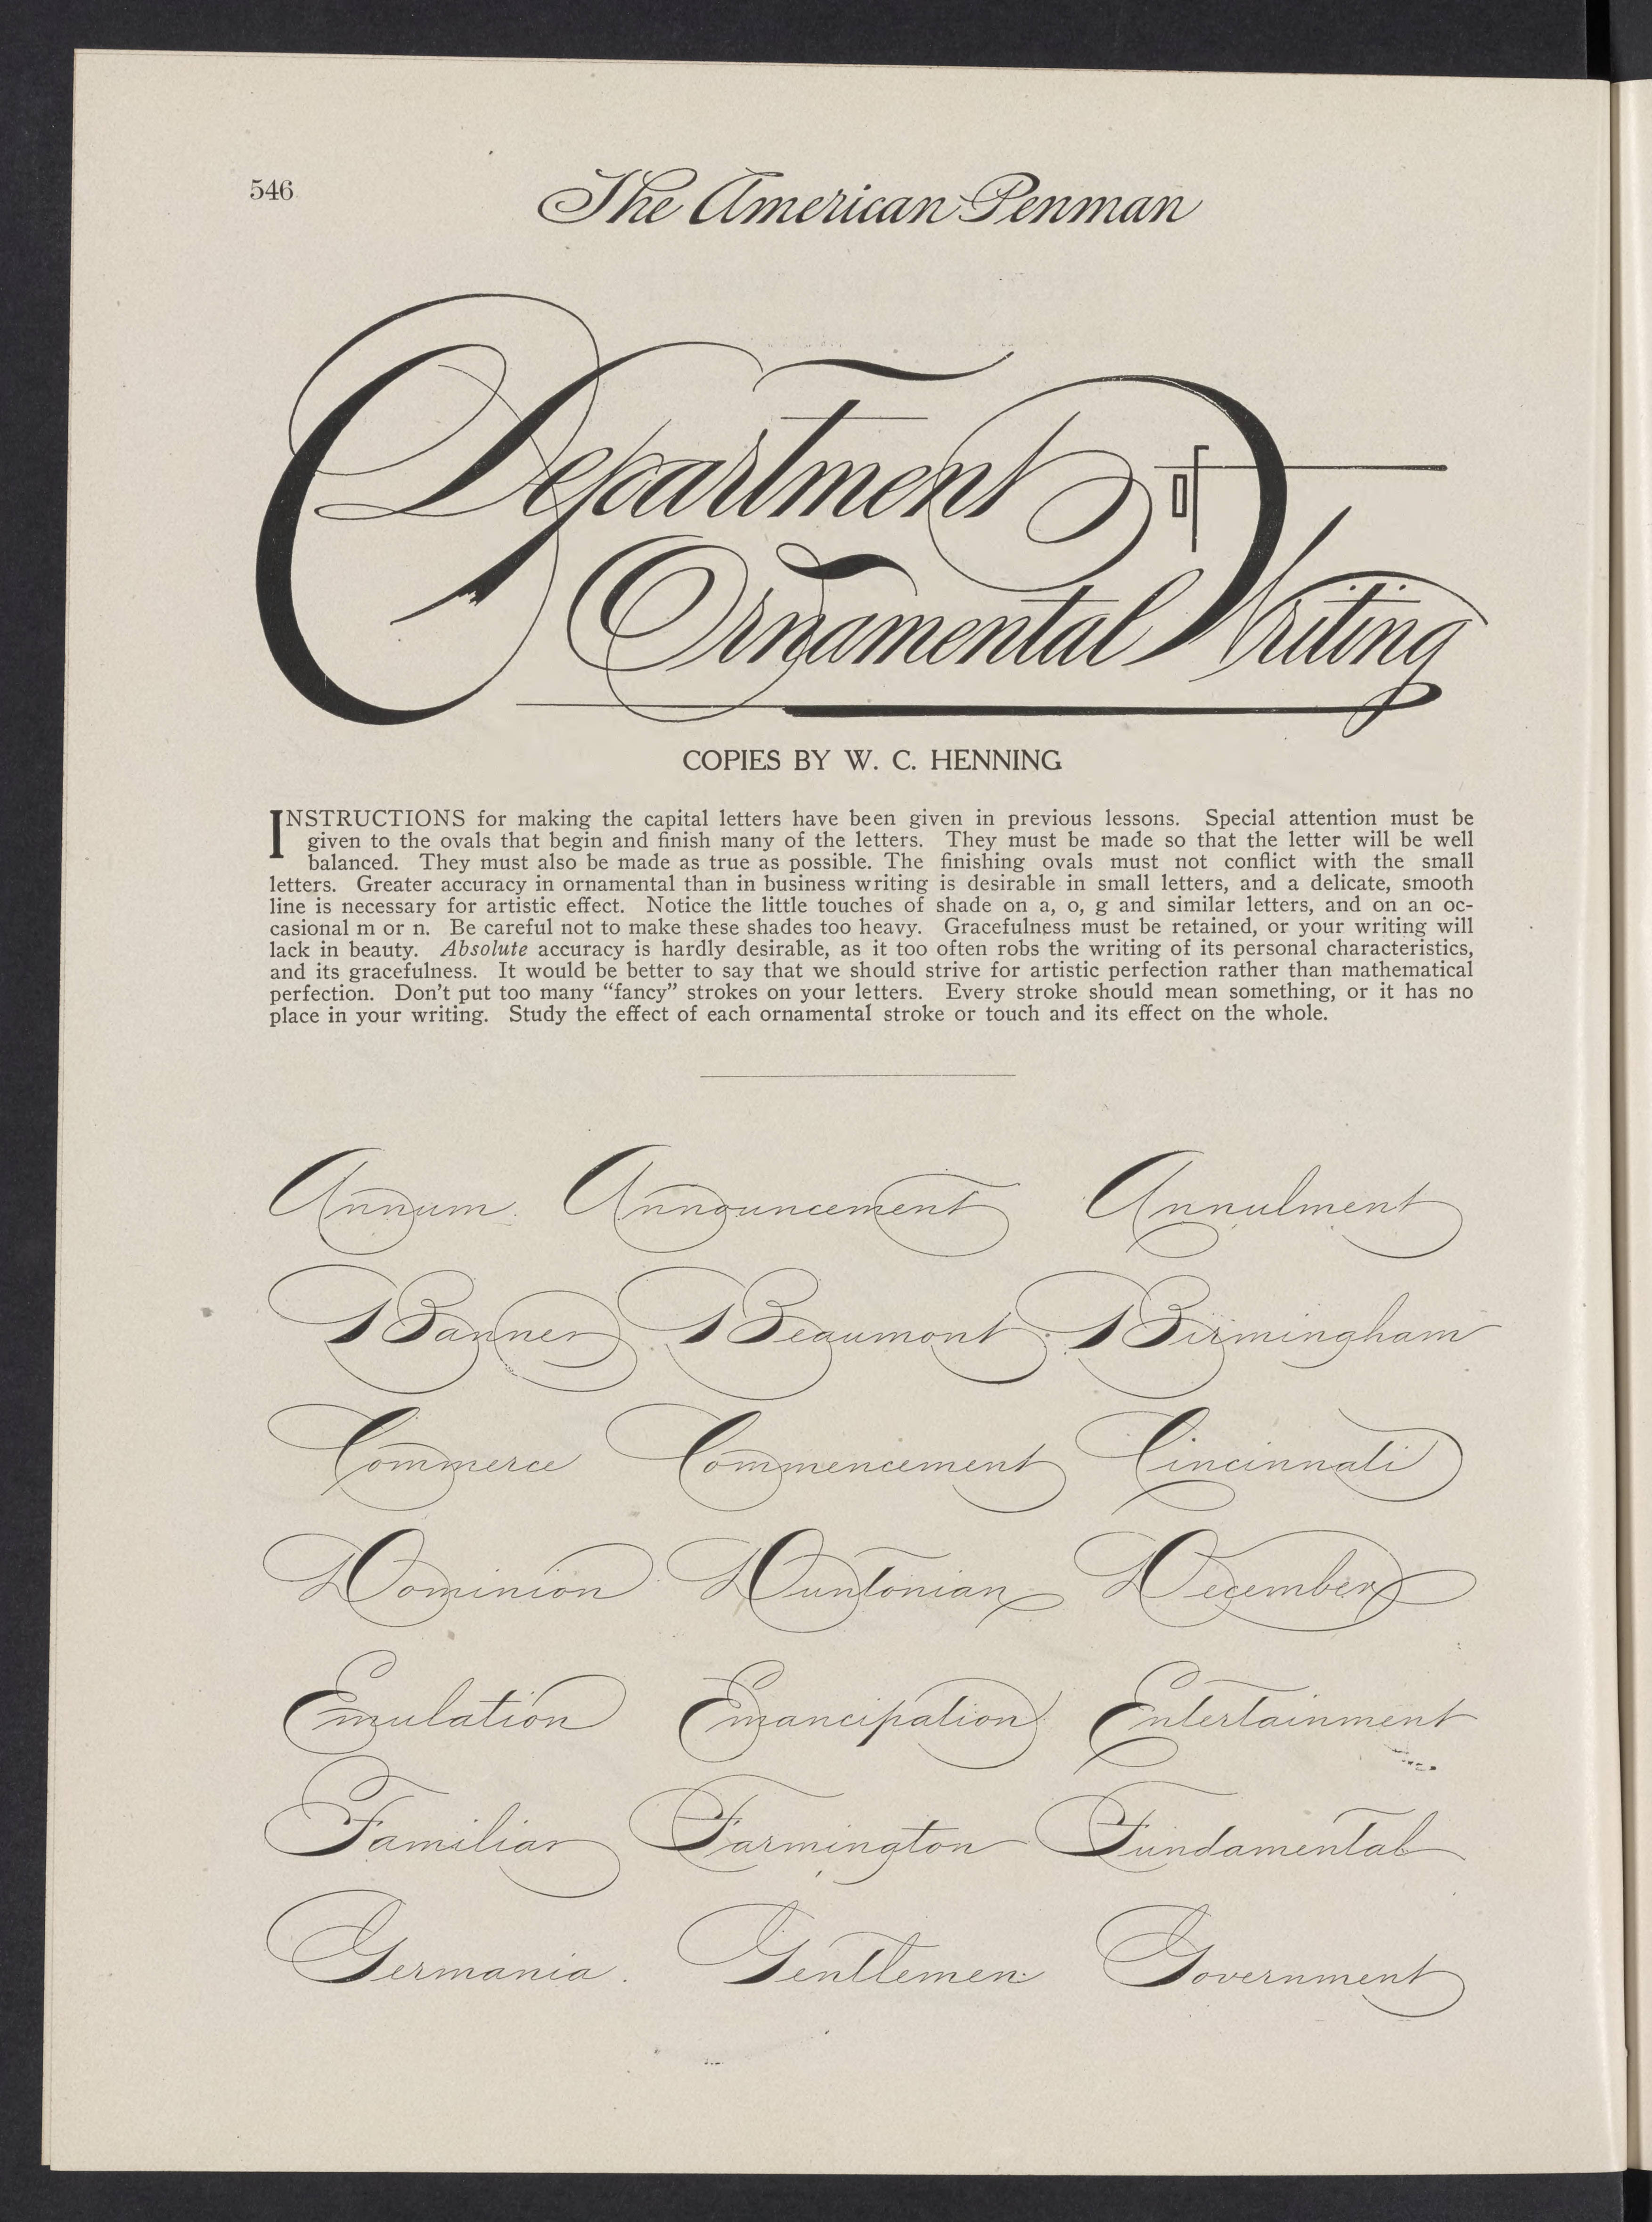 546
The American Penman
Department of
Ornamental Writing
COPIES BY W. C. HENNING
INSTRUCTIONS for making the capital letters have been given in previous lessons. Special attention must be
given to the ovals that begin and finish many of the letters. They must be made so that the letter will be well
balanced. They must also be made as true as possible. The finishing ovals must not conflict with the small
letters. Greater accuracy in ornamental than in business writing is desirable in small letters, and a delicate, smooth
line is necessary for artistic effect. Notice the little touches of shade on a, o, g and similar letters, and on an oc-
casional m or n. Be careful not to make these shades too heavy. Gracefulness must be retained, or your writing will
lack in beauty. Absolute accuracy is hardly desirable, as it too often robs the writing of its personal characteristics,
and its gracefulness. It would be better to say that we should strive for artistic perfection rather than mathematical
perfection. Don't put too many “fancy” strokes on your letters. Every stroke should mean something, or it has no
place in your writing. Study the effect of each ornamental stroke or touch and its effect on the whole.
Annum Announcement Annulment
Banner Beaumont Birmingham
Commerce Commencement Cincinnati
Dominion Duntonian December
Emulation Emancipation Entertainment
Familiar Farmington Fundamental
Germania Gentlemen Government